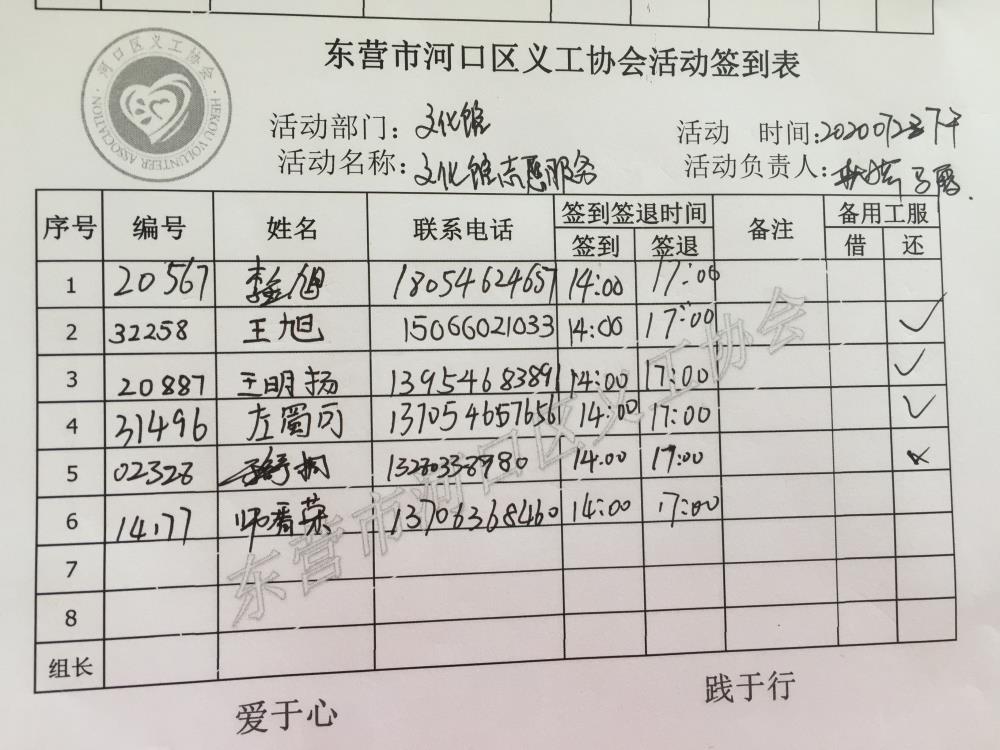 东营市河口区义工协会活动签到表
河口区义工协会
HEKOU VOLUNTEER ASSOCIATION
活动部门：文化馆
活动 时间:
活动名称：文化馆志愿服务
活动负责人:
序号 编号 姓名 联系电话 签到签退时间 备注 备用工服
签到 签退 借 还
1 20567 旭 18054624657 14:00 17:00
2 32258 王旭 15066021033 14:00 17:00 ✓
3 20887 王明扬 13954683891 14:00 17:00 ✓
4 31496 左蜀可 13705465765 14:00 17:00 ✓
5 02328 14:00 17:00
6 14177 师香荣 13706368460 14:00 17:00
7
8
组长
东营市河口区义工协会
爱于心 践于行